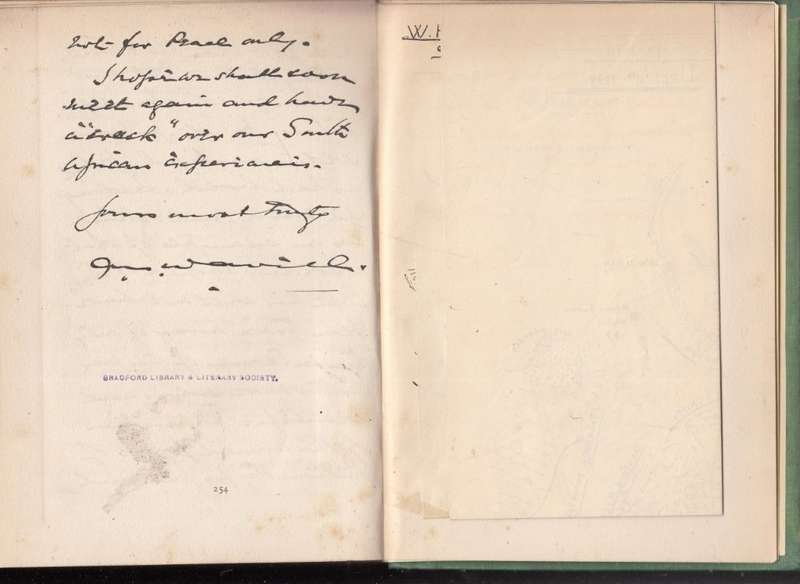 not for Peace only.
I hope we shall soon
meet again and have
a "crack" over our South
African experiences.
Yours most truly
BRADFORD LIBRARY & LITERARY SOCIETY.
254
W.